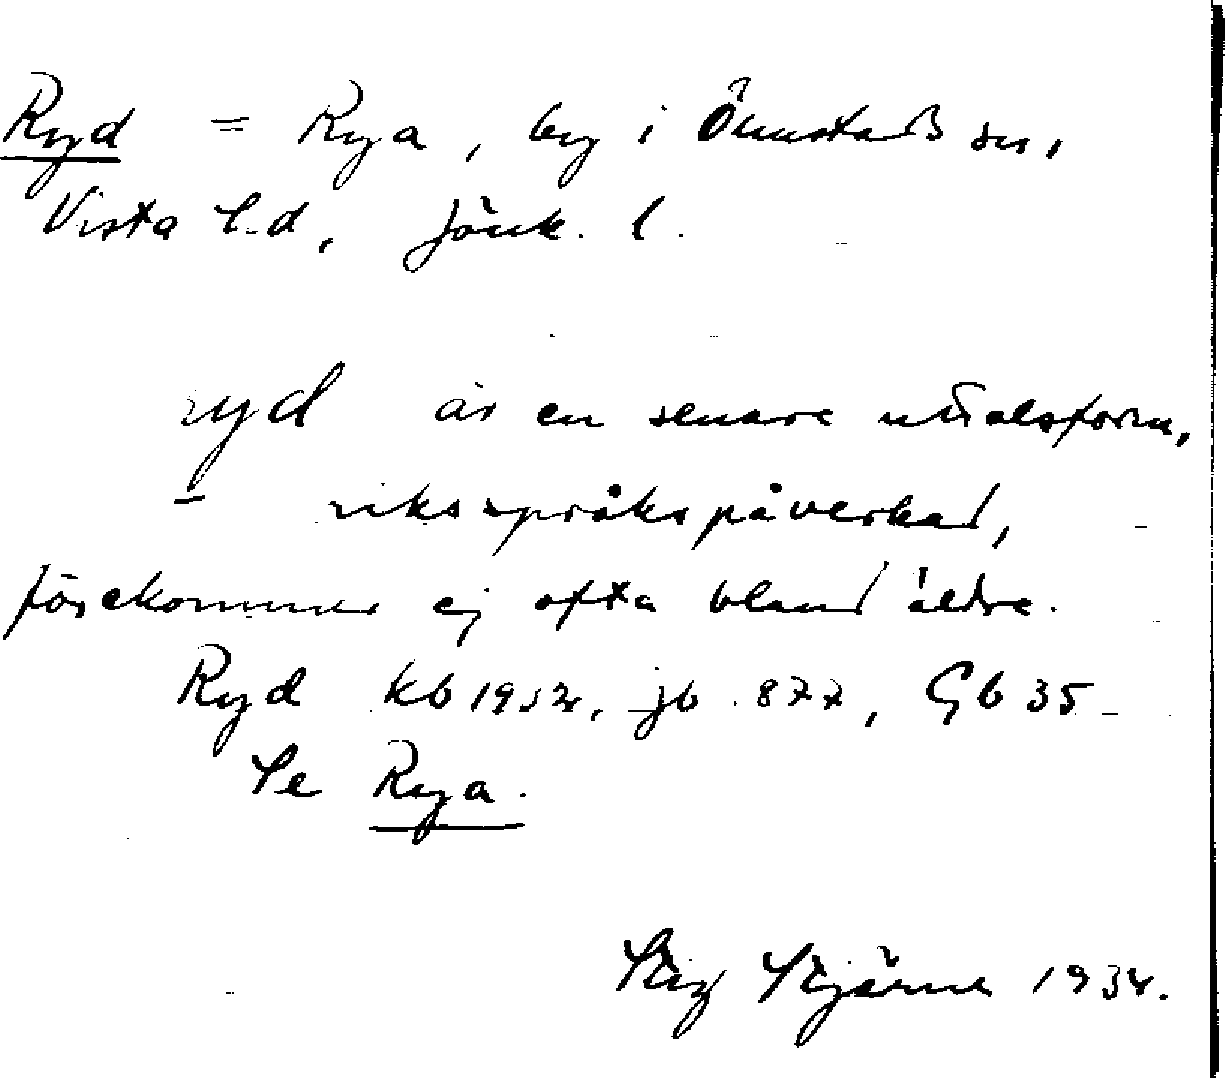 Ryd = Rya, by i Ölmstads sn,
Vista h-d, Jönk. l.
ryd är en senare uttalsform,
riksspråkspåverkad,
förekommer ej ofta bland äldre.
Ryd kb jb 877, Gb 35
Se Rya.
Stig Stjärne 1934.